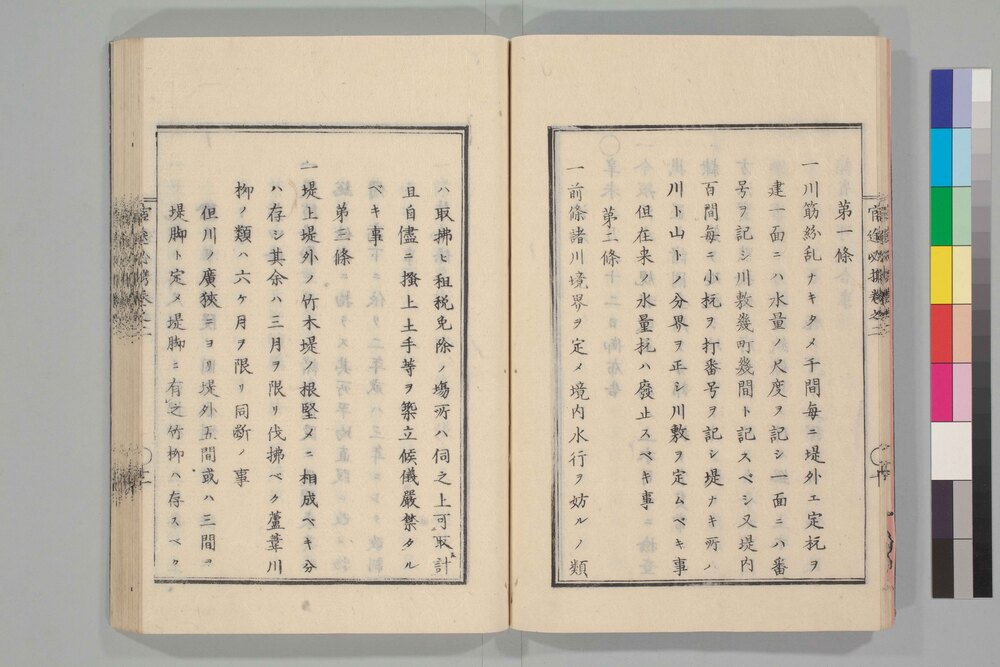 第一條
一川筋紛乱ナキタメ千間毎ニ堤外エ定杭ヲ
建一面ニハ水量ノ尺度ヲ記シ一面ニハ番
号ヲ記シ川敷幾町幾間ト記スベシ又堤内
百間毎ニ小杭ヲ打番号ヲ記シ堤ナキ所ハ
川ト山トノ分界ヲ正シ川敷ヲ定ムベキ事
但在来ノ水量杭ハ廢止スベキ事
第二條
一前條諸川境界ヲ定メ境内水行ヲ妨ルノ類
ハ取拂ヒ租税免除ノ場所ハ伺之上可取計
且自儘ニ撥上土手等ヲ築立候儀嚴禁タル
ベキ事
第三條
一堤上堤外ノ竹木堤ノ根堅メニ相成ベキ分
ハ存シ其余ハ三月ヲ限リ伐拂ベク蘆葦川
柳ノ類ハ六ケ月ヲ限リ同断ノ事
但川ノ廣狹ニヨリ堤外五間或ハ三間ヲ
堤脚ト定メ堤脚ニ有之竹柳ハ存スベク